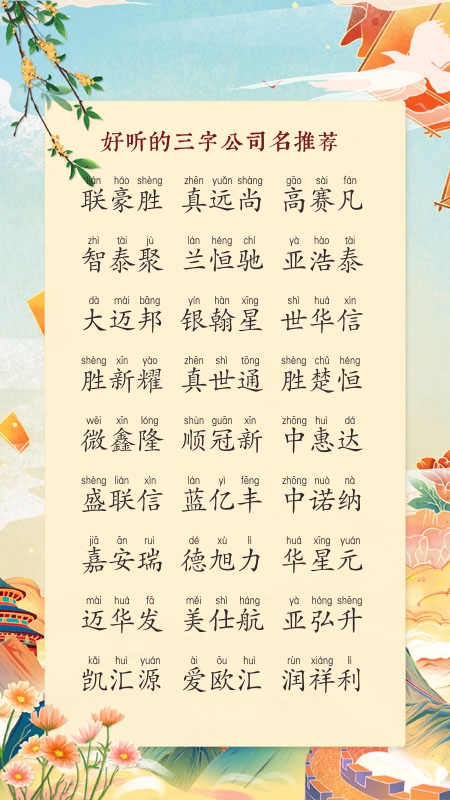 好听的三字公司名推荐
lián háo shèng zhēn yuǎn shàng gāo sài fán
联豪胜 真远尚 高赛凡
zhì tài jù lán héng chí yà hào tài
智泰聚 兰恒驰 亚浩泰
dà mài bāng yín hàn xīng shì huá xìn
大迈邦 银翰星 世华信
shèng xīn yào zhēn shì tōng shèng chǔ héng
胜新耀 真世通 胜楚恒
wēi xīn lóng shùn guān xīn zhōng huì dá
微鑫隆 顺冠新 中惠达
shèng lián xìn lán yì fēng zhōng nuò nà
盛联信 蓝亿丰 中诺纳
jiā ān ruì dé xù lì huá xīng yuán
嘉安瑞 德旭力 华星元
mài huá fā měi shì háng yà hóng shēng
迈华发 美仕航 亚弘升
kǎi huì yuán ài ōu huì rùn xiáng lì
凯汇源 爱欧汇 润祥利